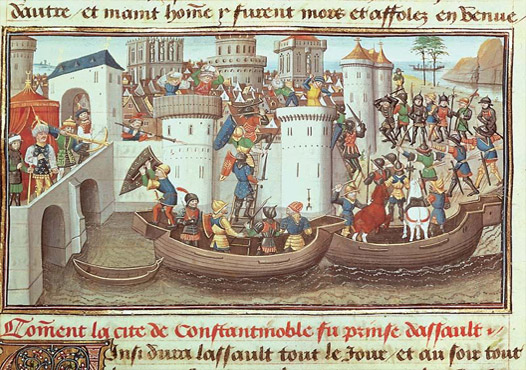 dautre / et maint home y furent mors et affolez en lenue
Coment la cite de Constantinoble fu prinse dassault
Ainsi dura lassault tout le Jour / et au soir tout